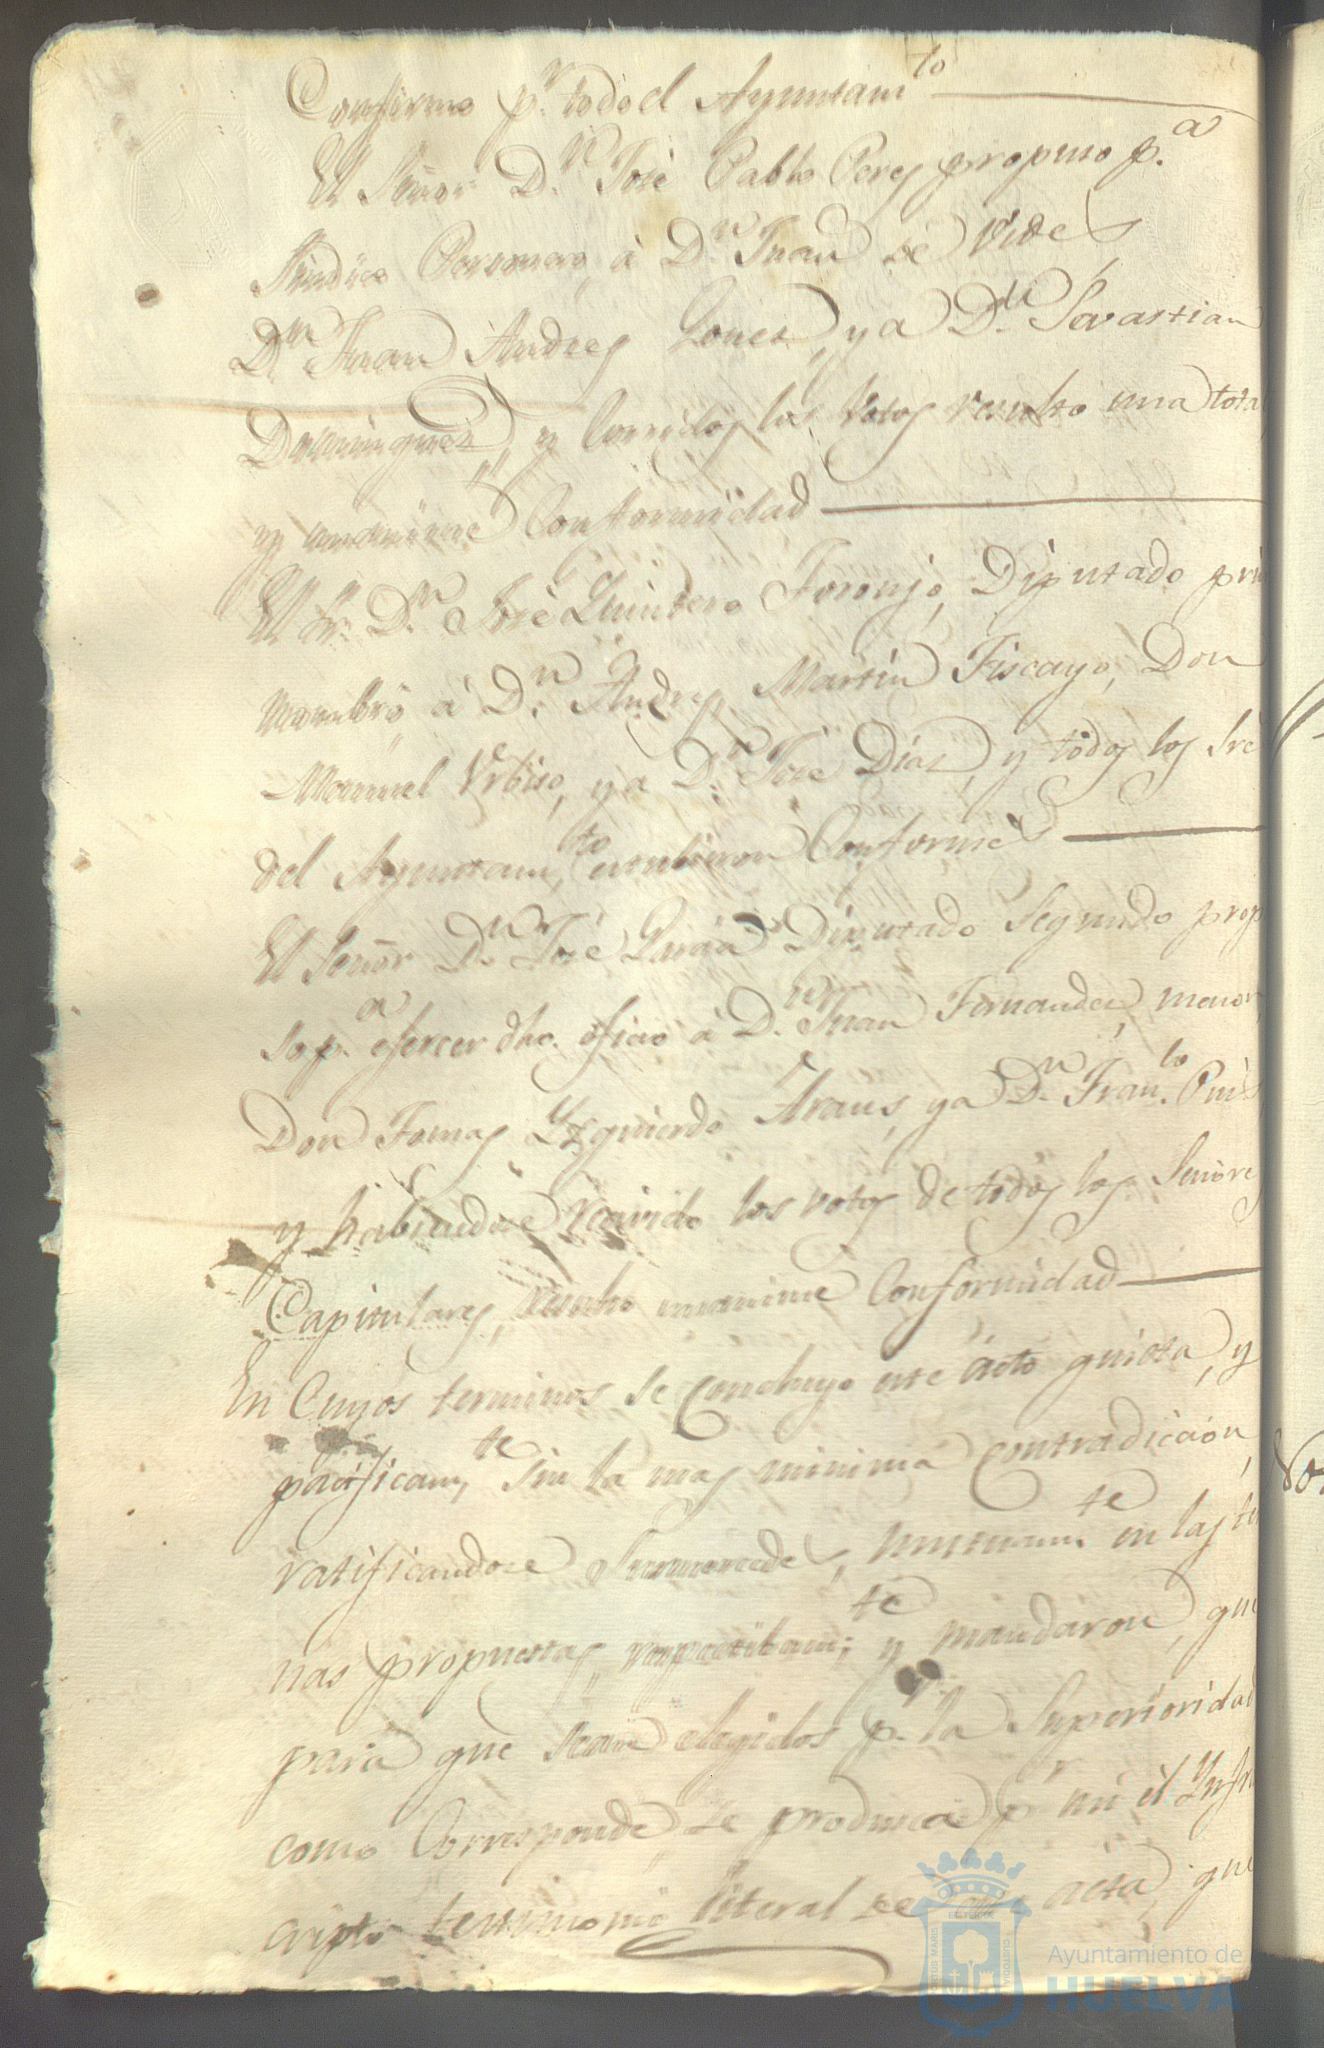 Conforme pr. todo el Ayuntamto
El Señor Dn. José Pablo Perez propuso p.a
Sindico Personero, á Dn. Juan de Vides
Dn. Juan Andres Gomez, y a Dn. Sevastian
Dominguez, y corridos los Votos resulto una total
y unanime Conformidad
El Sr. Dn. José Quintero Toronjo, Diputado pri
nombró á Dn. Andres Martin Fiscayo, Don
Manuel Urbiso, y a Dn. José Diaz, y todos los Sre
del Ayuntamto, estubieron Conformes
El Señor Dn. José Diputado Segundo prop
so p.a ejercer dho. oficio á Dn. Juan Fernandez menor
Don Tomas Yzquierdo Araus, y a Dn. Franco.
y habiendose recivido los votos de todos los Señores
Capitulares, resulto unanime Conformidad
En Cuyos terminos se concluyo este acto quieta, y
pacificamte, sin la mas minima contradicion,
ratificandose Sus mercedes, mutuamte. en las ter
nas propuestas, respectibamte; y mandaron, que
para que sean elegidos pr. la Superioridad
como Corresponde, se produsca pr. mi el Ynfra
cripto testimonio literal de esta acta, que
Ayuntamiento de
HUELVA